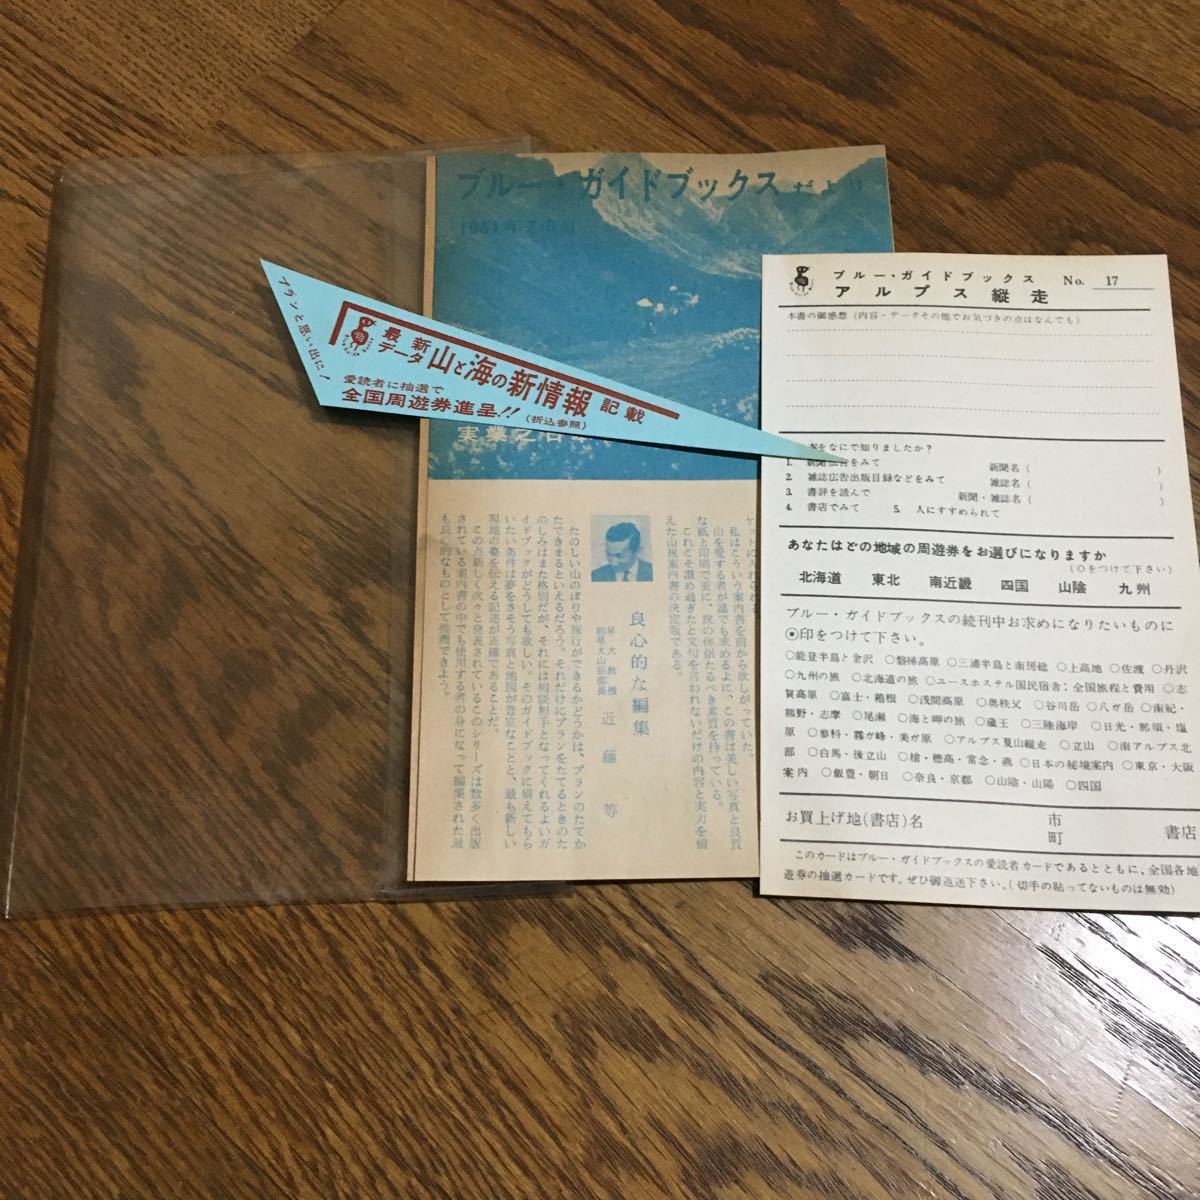 ブルー・ガイドブックスだより
1961年7月
プランと思い出に！
最新
データ
山と海の新情報
記載
愛読者に抽選で
全国周遊券進呈!!
(折込参照)
実業之日本
私はこういう案内書を前から欲しがっていた。
山を愛する者が誰でも求めるように、この書は美しい写真と良質
な紙と印刷で更に、旅の伴侶たるべき素質を持っている。
これこそ讃め過ぎたと文句を言われないだけの内容と実力を備
えた山旅案内書の決定版である。
良心的な編集
早大教授
近藤等
たのしい山のぼりや旅行ができるかどうかは、プランのたてか
たできまるといえるだろう。それだけにプランをたてるときのた
のしみはまた格別だが、それには相談相手となってくれるよいガ
イドブックがどうしても欲しい。そのガイドブックに備えてもら
いたい条件は夢をさそう写真と地図が豊富なこと、最も新しい
現地の姿を伝える記述が正確であることだ。
この点新しく次々と発表されているこのシリーズは数多く出版
されている案内書の中でも使用する者の身になって編集された最
も良心的なものとして推薦できよう。
ブルー・ガイドブックス No. 17
アルプス縦走
本書の御感想(内容・データその他でお気づきの点はなんでも)
本をなにで知りましたか?
1. 新聞広告をみて 新聞名( )
2. 雑誌広告出版目録などをみて 雑誌名( )
3. 書評を読んで 新聞・雑誌名( )
4. 書店でみて 5. 人にすすめられて
あなたはどの地域の周遊券をお選びになりますか
(○をつけて下さい)
北海道 東北 南近畿 四国 山陰 九州
ブルー・ガイドブックスの続刊中お求めになりたいものに
◉印をつけて下さい。
○能登半島と金沢 ○磐梯高原 ○三浦半島と南房総 ○上高地 ○佐渡 ○丹沢
○九州の旅 ○北海道の旅 ○ユースホステル国民宿舎;全国旅程と費用 ○志
賀高原 ○富士・箱根 ○浅間高原 ○奥秩父 ○谷川岳 ○八ガ岳 ○南紀・
熊野・志摩 ○尾瀬 ○海と岬の旅 ○蔵王 ○三陸海岸 ○日光・那須・塩
原 ○蓼科・霧ガ峰・美ガ原 ○アルプス夏山縦走 ○立山 ○南アルプス北
部 ○白馬・後立山 ○槍・穂高・常念・燕 ○日本の秘境案内 ○東京・大阪
案内 ○飯豊・朝日 ○奈良・京都 ○山陰・山陽 ○四国
お買上げ地(書店)名 市
町 書店
このカードはブルー・ガイドブックスの愛読者カードであるとともに、全国各地
遊券の抽選カードです。ぜひ御返送下さい。(切手の貼ってないものは無効)